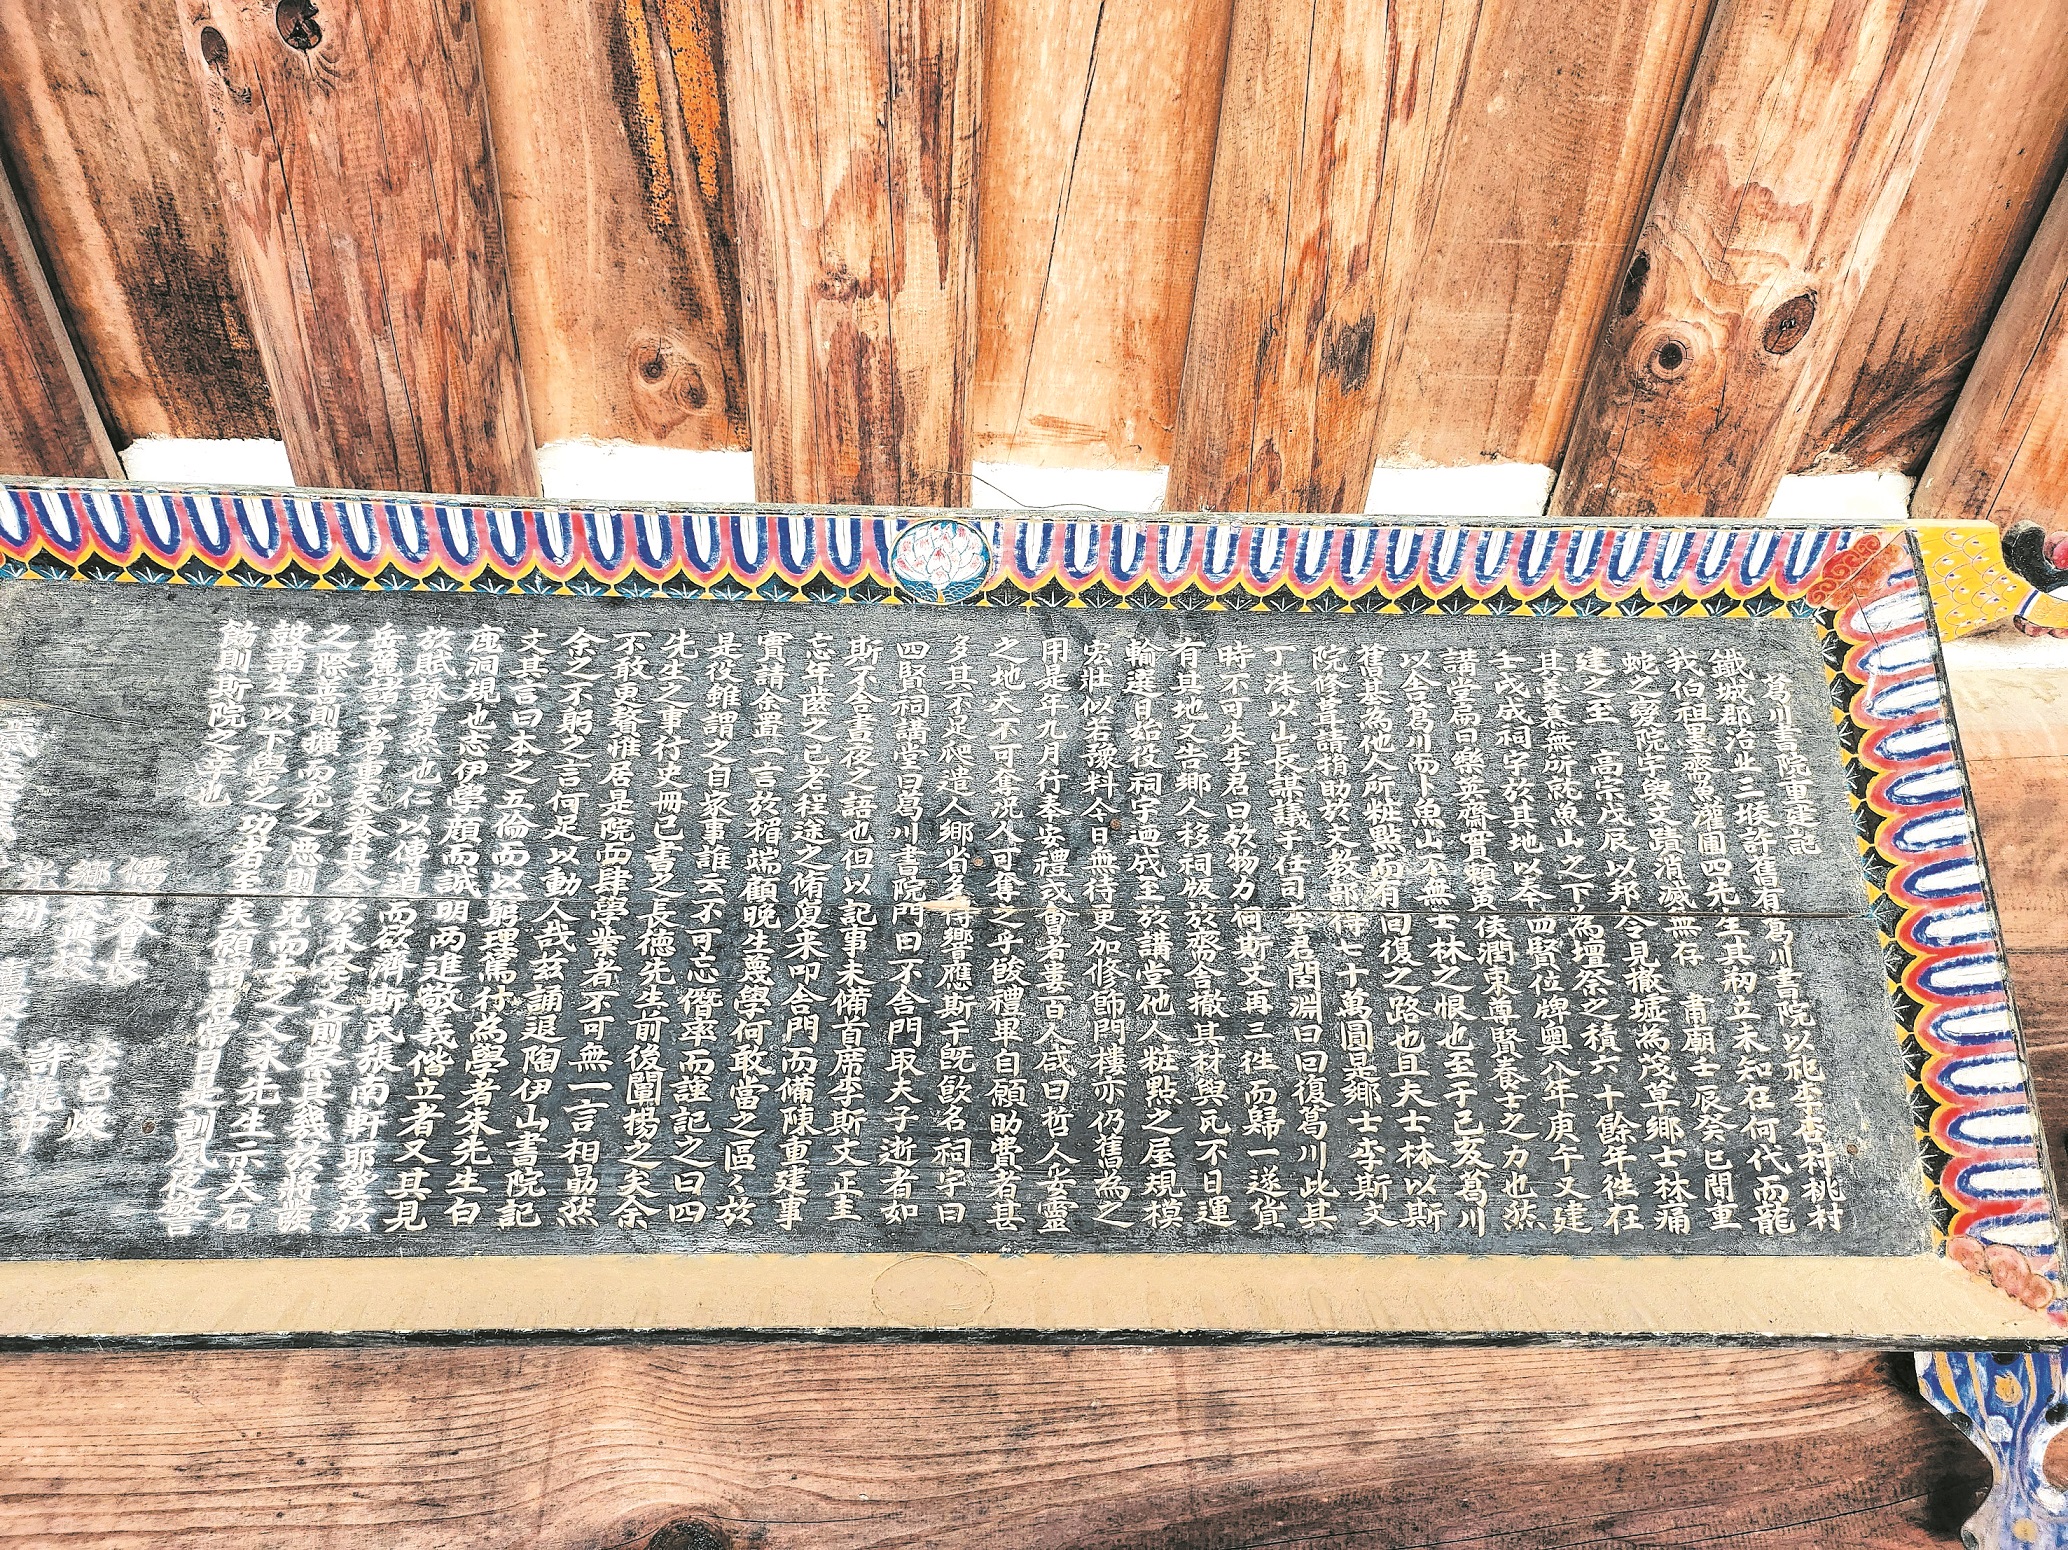 葛川書院重建記
鐵城郡治北三堠許舊有葛川書院以祀李杏村桃村
我伯祖墨齋魚灌圃四先生其初立未知在何代而龍
蛇之變院宇與文蹟消滅無存 肅廟壬辰癸巳間重
建之至 高宗戊辰以邦令見撤墟為茂草鄉士林痛
其羹慕無所就魚山之下為壇祭之積六十餘年往在
壬戌成祠宇於其地以奉 四賢位牌奧八年庚午又建
講堂扁曰樂英齋實賴黃侯潤東尊賢養士之力也然
以舍葛川而卜魚山不無士林之恨也至于己亥葛川
舊基為他人所粧點而有 回復之路也且夫士林以斯
院修葺請揹助於文教部得七十萬圓是鄉士李斯文
丁洙以山長謀議于任司李君閏淵曰回復葛川此其
時不可失李君曰於物力何斯文再三往而歸一遂貨
有其地又告鄉人移祠版於齋舍撤其材與瓦不日運
輸選日始役祠宇迺成至於講堂他人粧點之屋規模
宏壯似若豫料今日無待更加修飾門樓亦仍舊為之
甲是年九月行奉安禮或會者婁百人咸曰哲人妥靈
之地天不可奪況人可奪之乎餕禮畢自願助費者甚
多其不足爬遣人鄉省多得響應斯干既飮名祠宇曰
四賢祠講堂曰葛川書院門曰不舍門取夫子逝者如
斯不舍晝夜之語也但以記事未備首席李斯文正圭
忘年齒之已老程途之脩敻来叩舍門而備陳重建事
實請余置一言於楣端顧晚生蔑學何敢當之區々於
是役雖謂之自家事誰云不可忘僭率而謹記之曰四
先生之事行史冊已書之長德先生前後闡揚之矣余
不敢更贅惟居是院而肆學業者不可無一言相勗然
余之不躬之言何足以動人哉茲誦退陶伊山書院記
文其言曰本之五倫而以窮理篤行為學者朱先生白
鹿洞規也志伊學顔而誠明兩進敬義偕立者又其見
於賦詠者然也仁以傳道而欲濟斯民張南軒耶聖於
岳麓諸子者重矣養其全於未發之前察其幾於將發
之際善則擴而充之惡則克而去之又朱先生示大石
設諸生以下學之功者至矣願諸君常目是訓夙夜警
飭則斯院之幸也
儒 會長 李宅煥
鄉 典校 許龍中